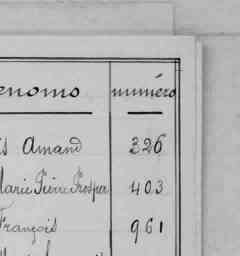 enoms numéro
is Amand 326
Marie Pierre Prosper 403
François 961